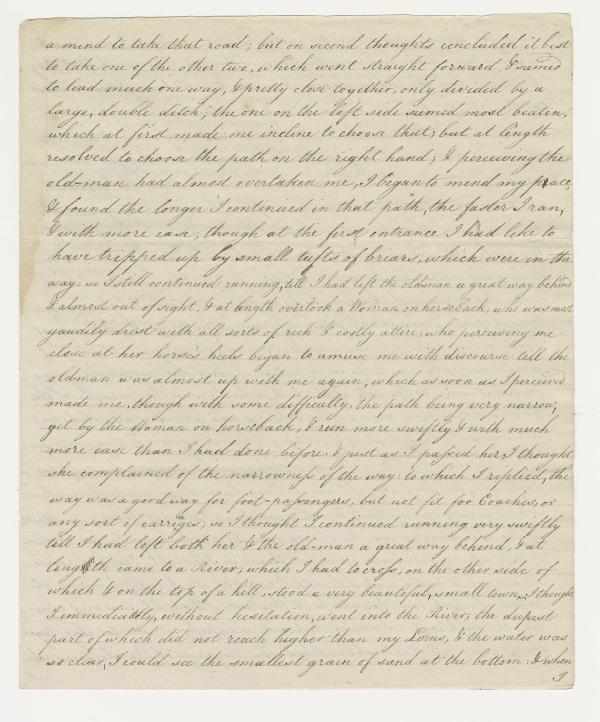 a mind to take that road; but on second thoughts concluded it best
to take one of the other two, which went straight forward & seemed
to lead much one way, & pretty close together, only divided by a
large, double ditch; the one on the left side seemed most beaten,
which at first made me incline to choose that; but at length
resolved to choose the path on the right hand; & perceiving the
old-man had almost overtaken me, I began to mend my pace,
& found the longer I continued in that path, the faster I ran,
& with more ease; though at the first entrance I had like to
have tripped up by small tufts of briars, which were in the
way: so I still continued running, till I had left the oldman a great way behind
& almost out of sight, & at length overtook a Woman on horseback; who was most
gaudily drest with all sorts of rich & costly attire; who perceiving me
close at her horse's heels began to amuse me with discourse till the
oldman was almost up with me again, which as soon as I perceived
made me, though with some difficulty, the path being very narrow,
get by the Woman on horseback, & run more swiftly & with much
more ease than I had done before & just as I passed her, I thought
she complained of the narrowness of the way: to which I replied, the
way was a good way for foot-passengers, but not fit for Coaches, or
any sort of carriges; so I thought I continued running very swiftly
till I had left both her & the old-man a great way behind, & at
length came to a River; which I had to cross, on the other side of
which & on the top of a hill, stood a very beautiful, small town, I thought
I immediately, without hesitation, went into the River; the deepest
part of which did not reach higher than my Loins, & the water was
so clear, I could see the smallest grain of sand at the bottom: & when
I